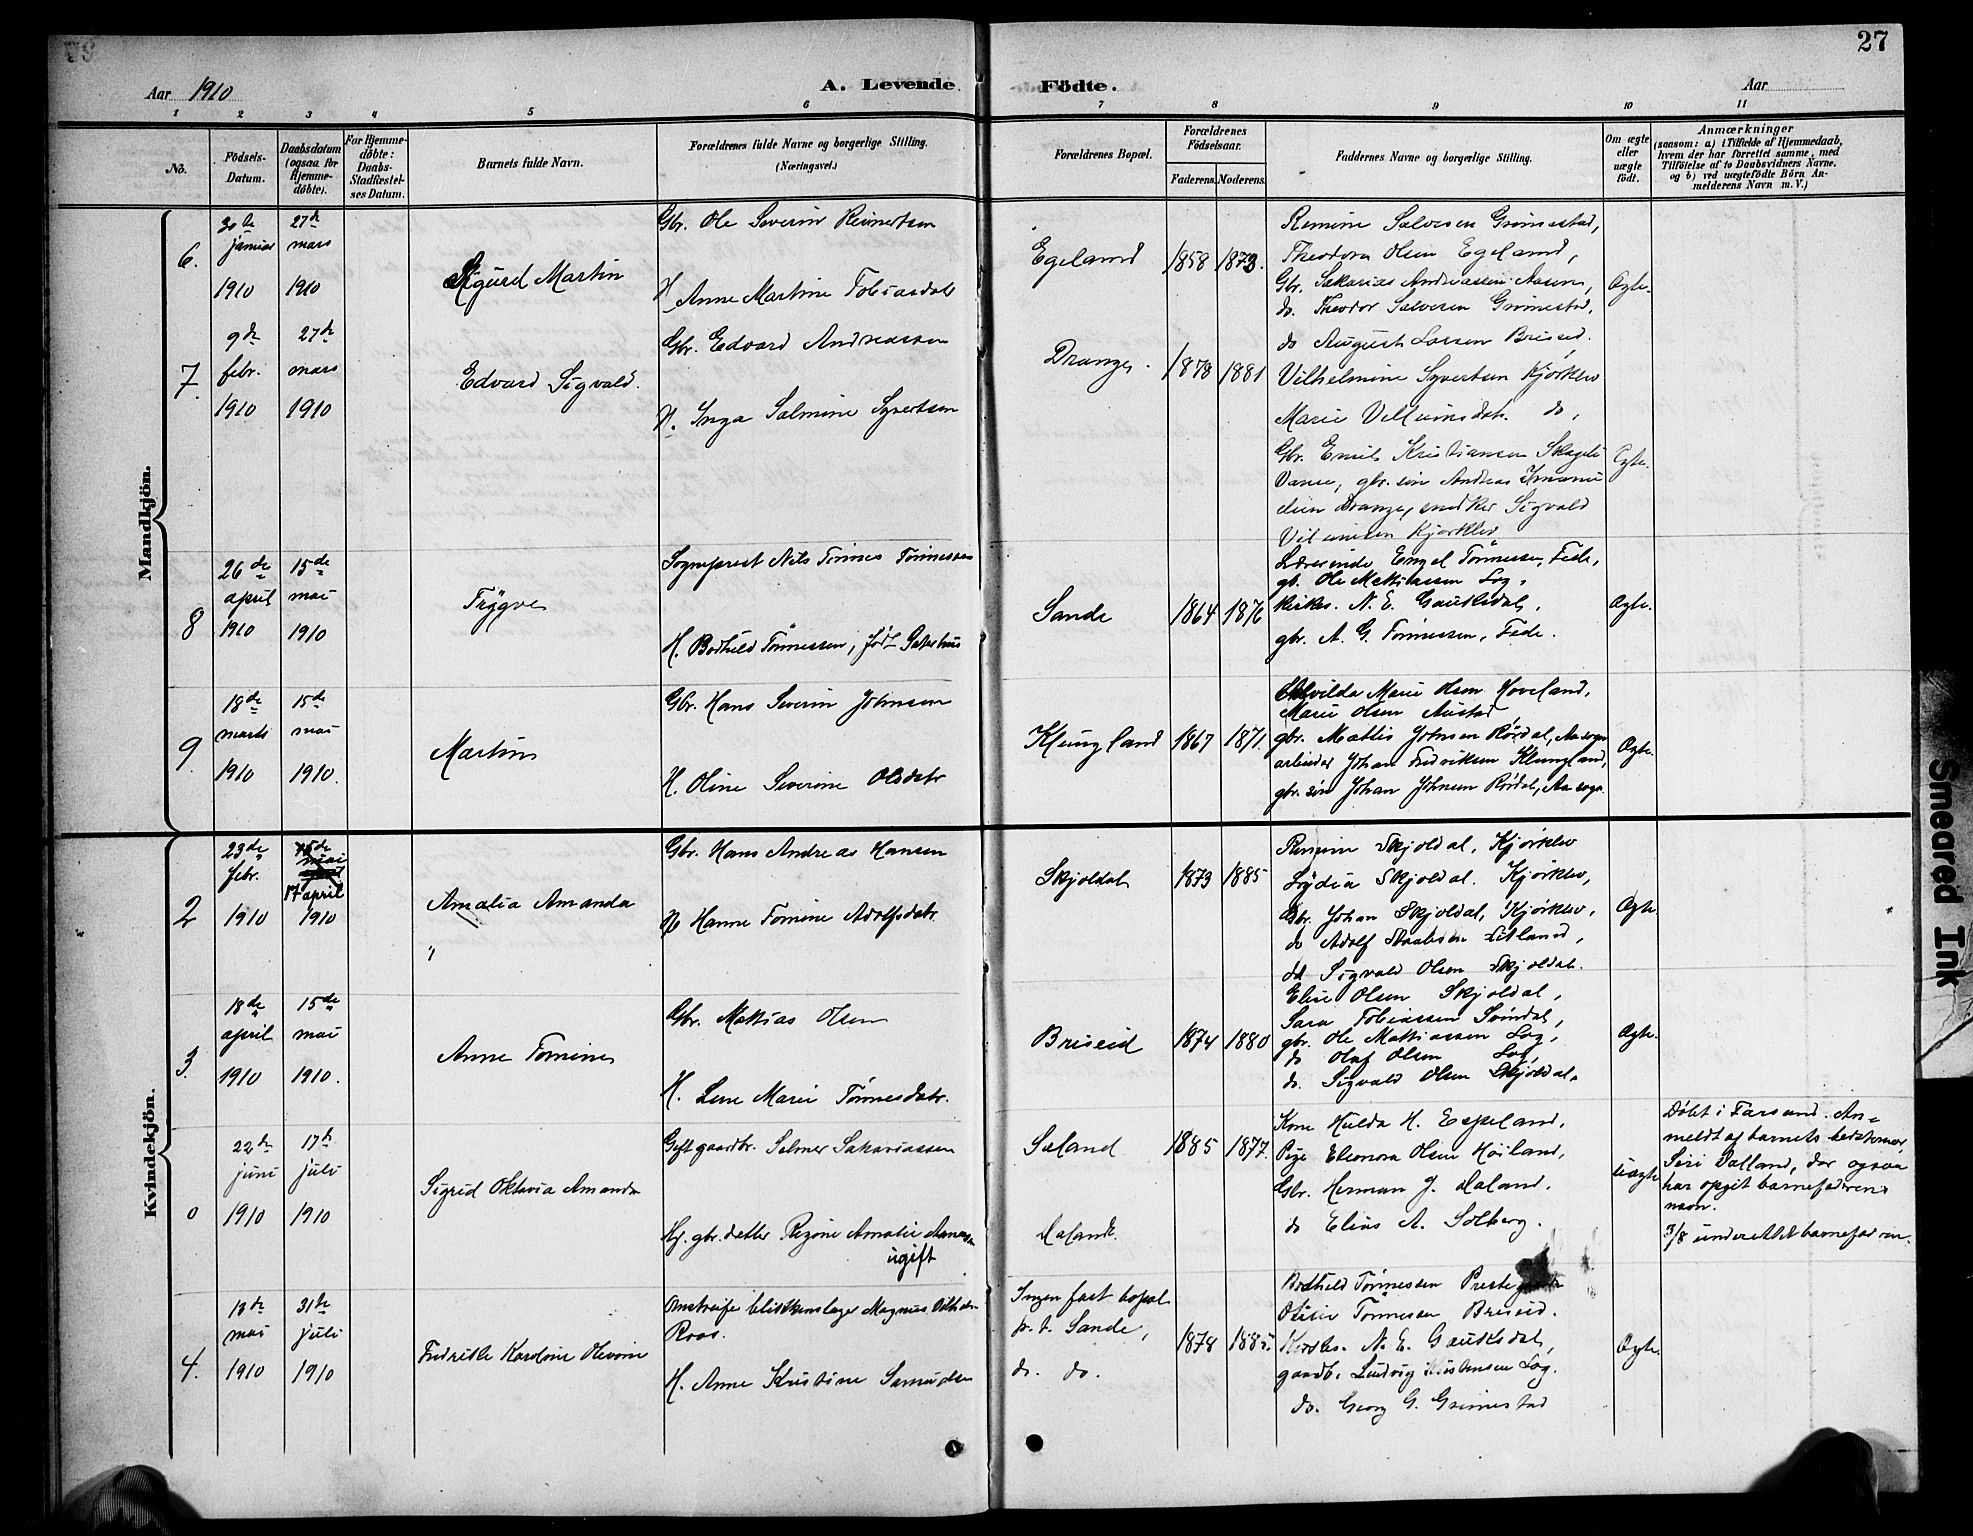 27
Aar 1910
A. Levende Födte.
Aar
1 2 3 4 5 6 7 8 9 10 11
No.
Födsels-Datum.
Daabsdatum (ogsaa for Hjemme-döbte).
For Hjemme-döbte: Daabs-Stadfæstel-ses Datum.
Barnets fulde Navn.
Forældrenes fulde Navne og borgerlige Stilling.
(Næringsvei.)
Forældrenes Bopæl.
Forældrenes Födselsaar.
Faderens. Moderens.
Faddernes Navne og borgerlige Stilling.
Om ægte eller uægte födt.
Anmærkninger
(saasom: a) i Tilfælde af Hjemmedaab,
hvem der har forrettet samme, med
Tilföielse af to Daabsvidners Navne,
og b) ved uægtefödte Börn An-
melderens Navn m. V.)
Mandkjön.
6.
30te januar 1910
27de mars 1910
Sigurd Martin
Gbr. Ole Severin Reinertsen
H. Anne Martine Tobiasdatr
Egeland
1858 1873.
Remine Salvesen Grimestad,
Theodora Olsen Egeland,
Gbr. Sakarias Andreassen Aasen,
do. Theodor Salvesen Grimestad,
do August Larsen Briseid.
Ægte.
7.
9de febr. 1910
27de mars 1910
Edvard Sigvald.
Gbr. Edvard Andreassen
H. Inga Salmine Syvertsen
Drange.
1878 1881
Vilhelmine Syvertsen Kjörklev
Marie do,
Gbr. Emil Kristiansen
Vanse, gbr. sön Andreas
Drange, snedker Sigvald
Kjörklev
Ægte.
8
26de april 1910
15de mai 1910
Trygve
Sogneprest Nils Tönnes Tönnessen
H. Bodhild Tönnessen, född
Sande
1864 1876
Lærerinde Engel Tönnessen, Fede,
gb. Ole Mathiassen Log,
Kirkes. N. E. Gauksdal,
gbr. A. G. Tönnessen, Fede.
Ægte.
9.
18de marts 1910
15de mai 1910.
Martin
Gbr. Hans Severin Johnsen
H. Oline Severine Olsdatr
Klungland
1867 1871.
Marie Olsen Hoveland,
Marie Olsen Austad
gbr. Mattis Johnsen Rördal, Aa sogn
arbeider Johan Fredriksen Klungland,
gbr. sön Johan Johnsen Rördal, Aa sogn.
Ægte.
Kvindekjön.
2
23de febr. 1910
15de mai
17 april 1910
Amalia Amanda
Gbr. Hans Andreas Hansen
H. Hanne Tomine Adolfsdatr.
Skjoldal
1873 1885
Remine Skjoldal, Kjörklev
Lydia Skjoldal. Kjörklev,
Gbr. Johan Skjoldal, Kjörklev,
do Adolf
do Sigvald Olsen Skjoldal.
Ægte.
3.
18de april 1910
15de mai 1910.
Anne Tomine
Gbr. Mathias Olsen
H. Lene Marie Tönnesdatr.
Briseid
1874 1880
Elise Olsen Skjoldal,
Sara Tobiassen Svindal,
gbr. Ole Mathiassen Log,
do Olaf Olsen Log,
do. Sigvald Olsen Skjoldal.
Ægte.
0
22de juni 1910
17de juli 1910
Sigrid Oktavia Amanda
Gift gaardbr. Selmer Sakariassen
Hj. gbr. datter Regine Amalie
ugift
Saland
1885 1877.
Kone Hulda H. Espeland,
Pige Eleonora Olsen Höiland,
Gbr. Herman J.
do Elias A. Solberg.
Uægte
Döbt i Farsund. An-
meldt af barnets bedstemor,
Siri der ogsaa
har opgit barnefaderens
navn.
3/8 underrettet barnefaderen.
4.
13de mai 1910
31te juli 1910
Fredrikke Karoline
Omstreifer blikkenslager Magnus
Roos.
H. Anne Kristine
Ingen fast bopæl
p. t. Sande,
do. do.
1878
Bodhild Tönnessen
Tönnessen Briseid.
Kirkes. N. E. Gauksdal,
gaardb. Ludvig Kristensen Log.
do. Georg G. Grimestad
Ægte.
Smeared Ink